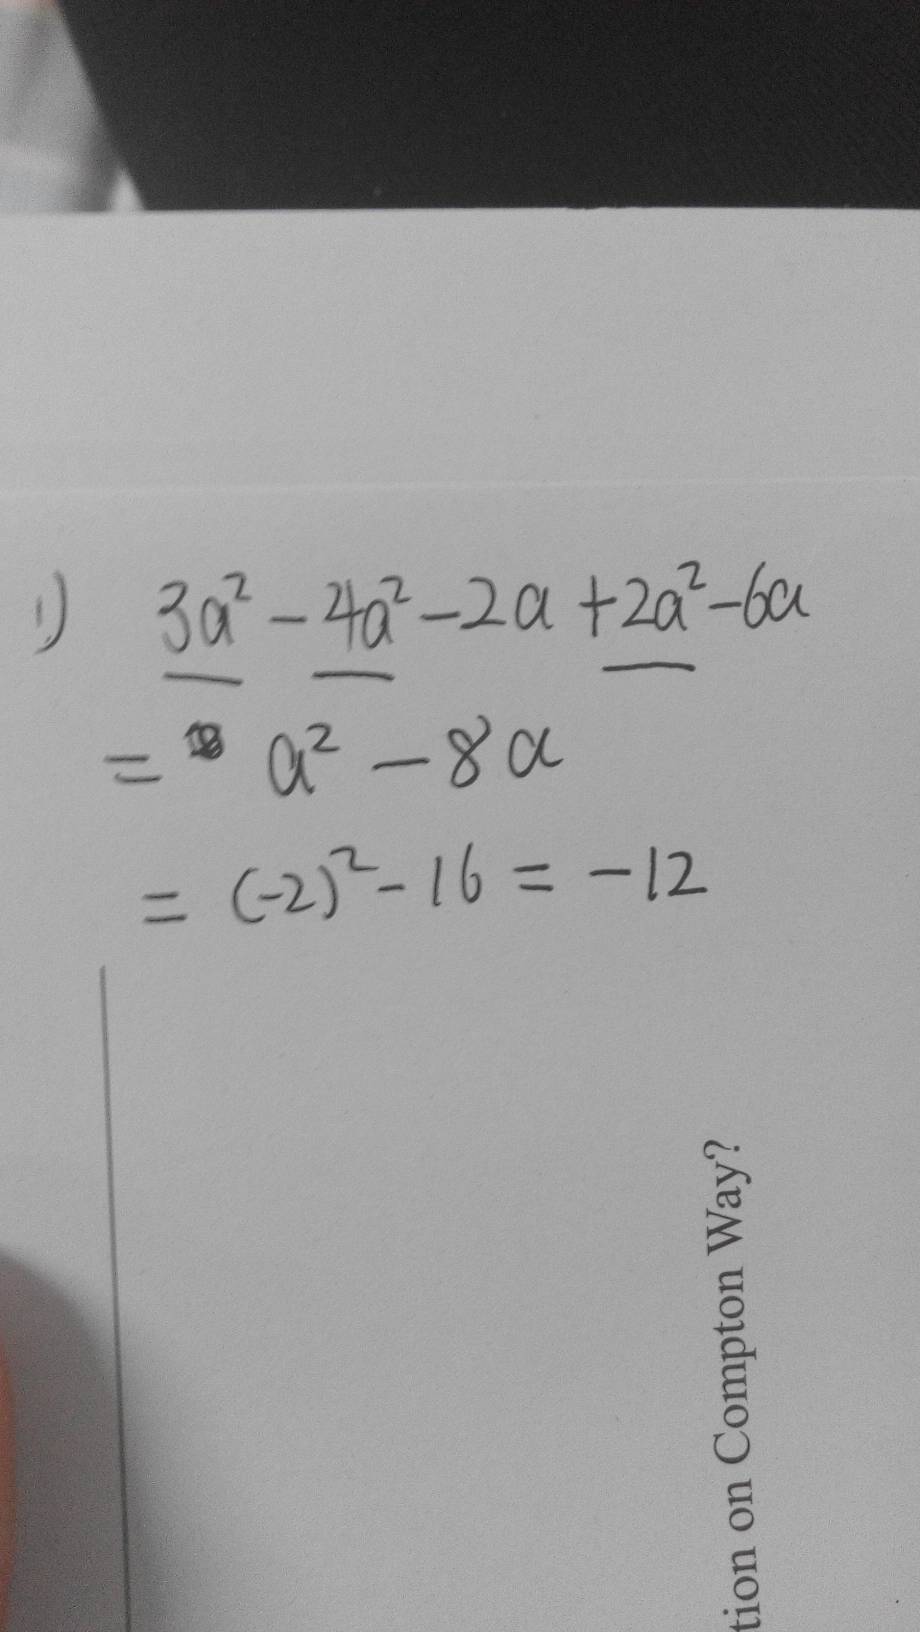 1) 3a² - 4a² - 2a + 2a² - 6a
= a² - 8a
= (-2)² - 16 = -12
tion on Compton Way?